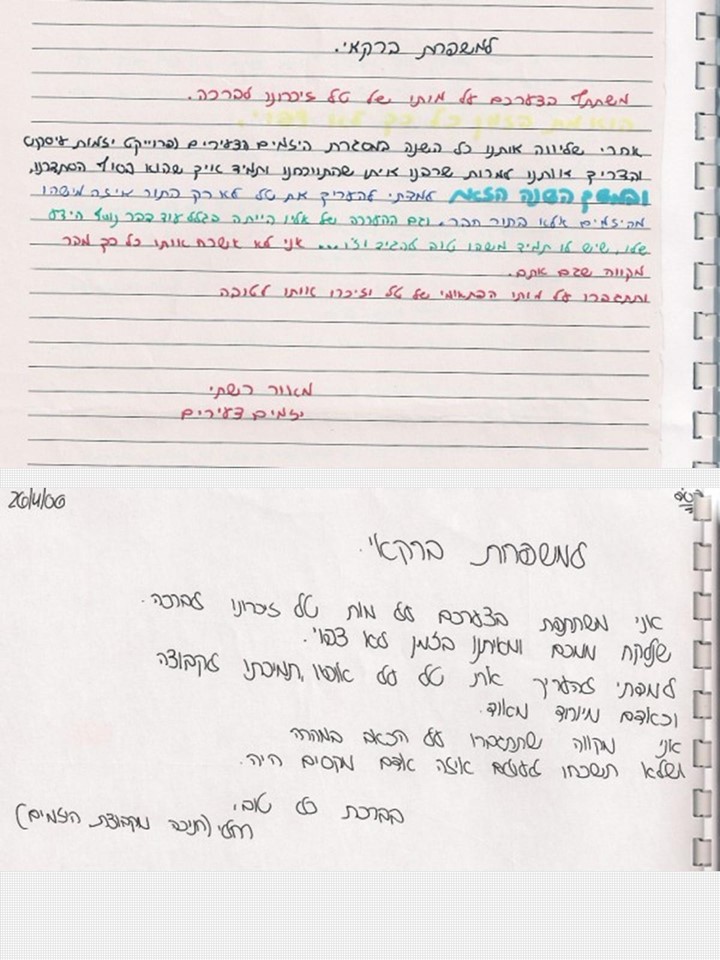 למשפחת ברקאי.
משתתף בצערכם על מותו של טל זיכרונו לברכה.
אחרי שליווה אותנו כל השנה במסגרת היזמים הצעירים (פרוייקט יזמות עיסקית
והצריך אותנו למרות שרבנו איתו שהתווכחנו ותמיד אייך שהוא בסוף הסתדרנו,
ובמשך השנה הזאת למדתי להעריך את טל לא רק בתור איזה מישהו
מהיזמים אלא בתור חבר. וגם ההערכה של אליו הייתה בגלל עוד דבר נוסף הידע
שלו, שיש לו תמיד משהו טוב להגיב וצ'ו... אני לא אשכח אותו כל כך מהר
מקווה שגם אתם.
ותתגברו על מותו הפתאומי של טל וזיכרו אותו לטובה
מאור רשתי
יזמים צעירים
26/4/06
למשפחת ברקאי.
אני משתתפת בצערכם על מות טל זיכרונו לברכה.
שנלקח מכם ומאיתנו בזמן לא צפוי.
למדתי להעריך את טל על אופיו, תמיכתו לקבוצה
וכאדם מיוחד מאוד.
אני מקווה שתתגברו על הכאב במהרה
ושלא תשכחו לעולם איזה אדם מקסים היה.
בברכת כל טוב,
רחלי (חניכה מקבוצת היזמים)